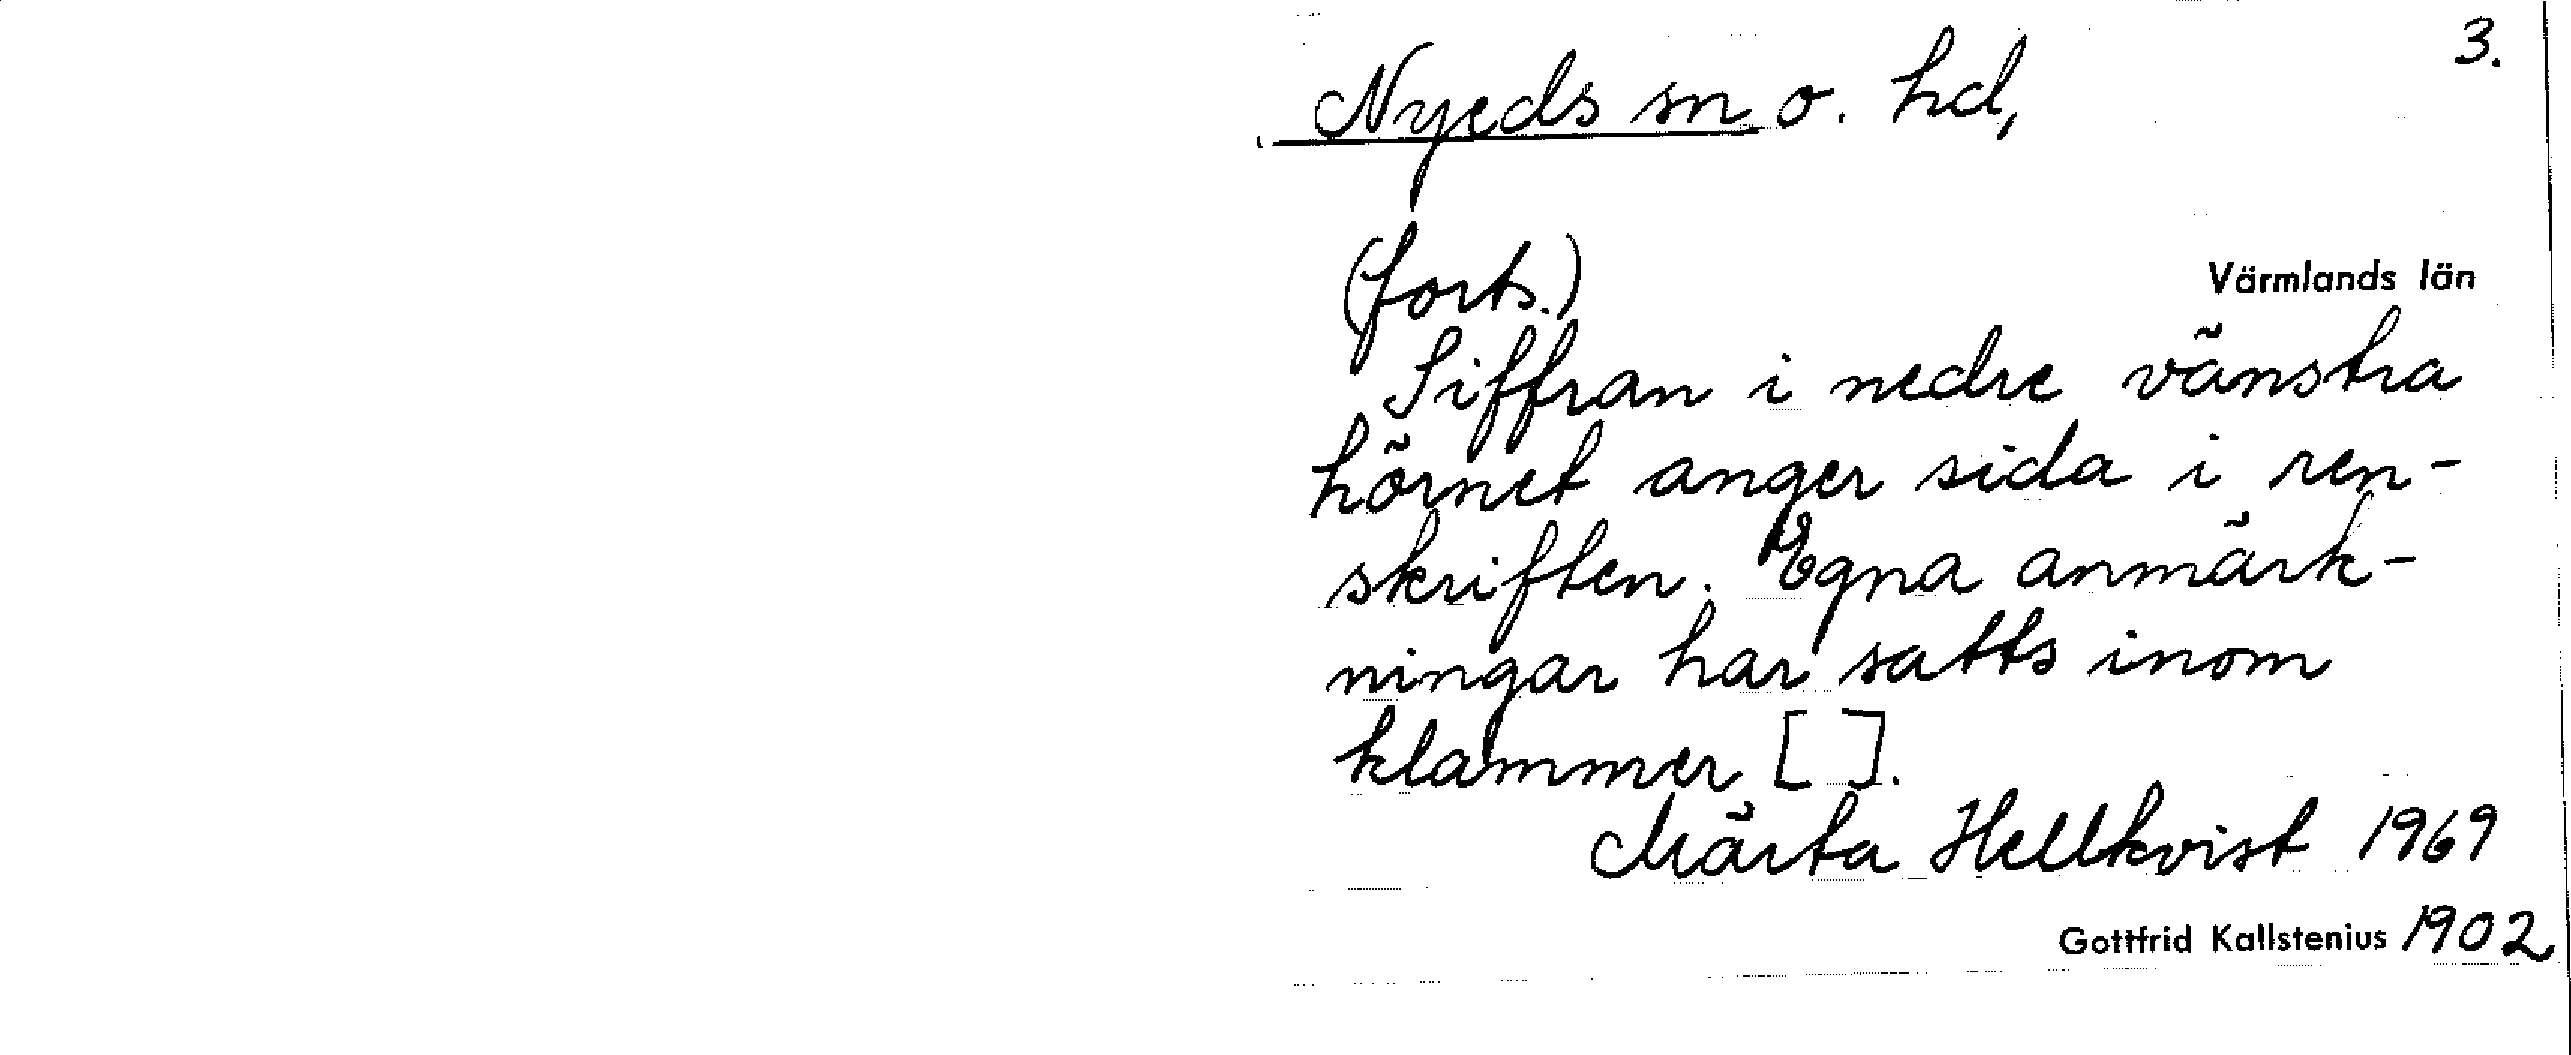 3.
Nyeds sn o. hd,
(forts.)
Värmlands län
Siffran i nedre vänstra
hörnet anger sida i ren-
skriften. Egna anmärk-
ningar har satts inom
klammer [ ].
Märta Hellkvist 1969
Gottfrid Kallstenius 1902